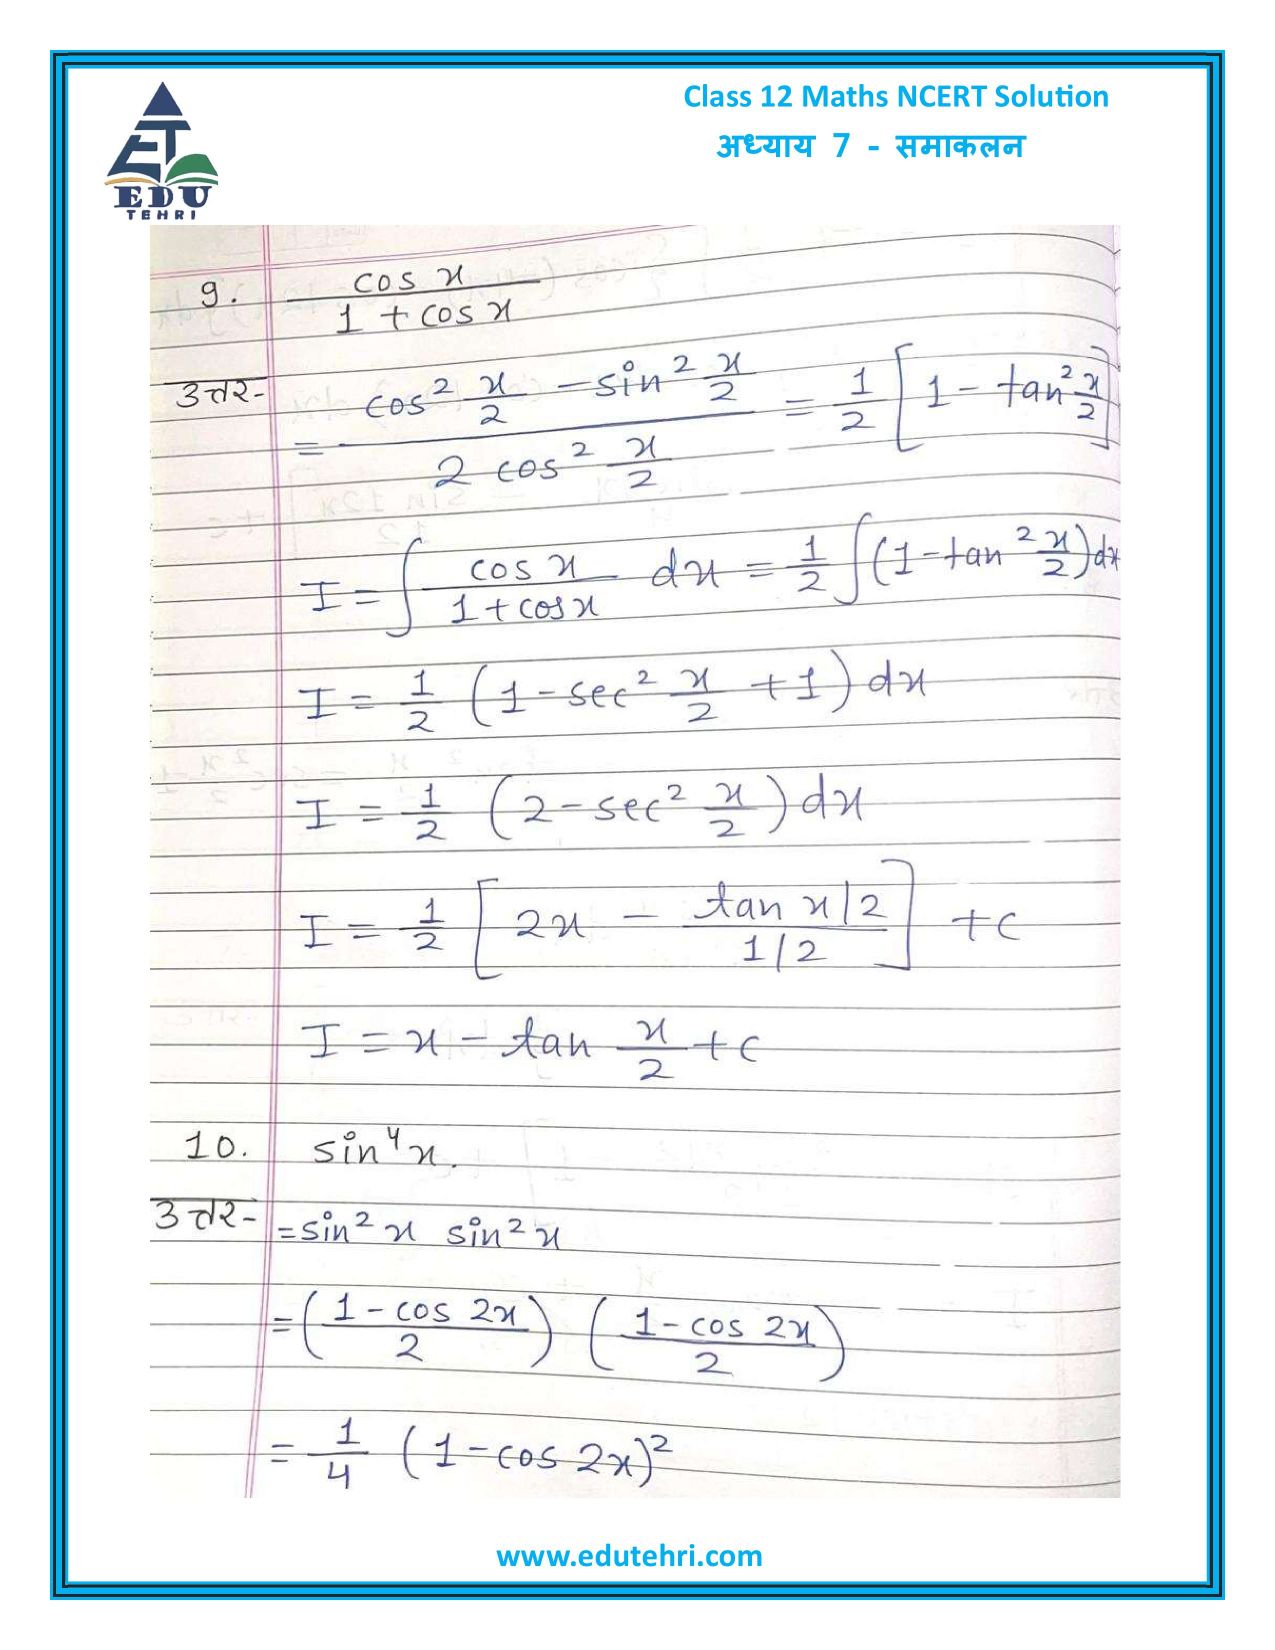 Class 12 Maths NCERT Solution
अध्याय 7 - समाकलन
EDU
TEHRI
9. cos x / 1 + cos x
उत्तर-
= cos² x/2 - sin² x/2 / 2 cos² x/2 = 1/2 [1 - tan² x/2]
I = ∫ cos x / 1 + cos x dx = 1/2 ∫ (1 - tan² x/2) dx
I = 1/2 (1 - sec² x/2 + 1) dx
I = 1/2 (2 - sec² x/2) dx
I = 1/2 [2x - tan x/2 / 1/2] + c
I = x - tan x/2 + c
10. sin⁴x.
उत्तर- = sin² x sin² x
= (1 - cos 2x / 2) (1 - cos 2x / 2)
= 1/4 (1 - cos 2x)²
www.edutehri.com